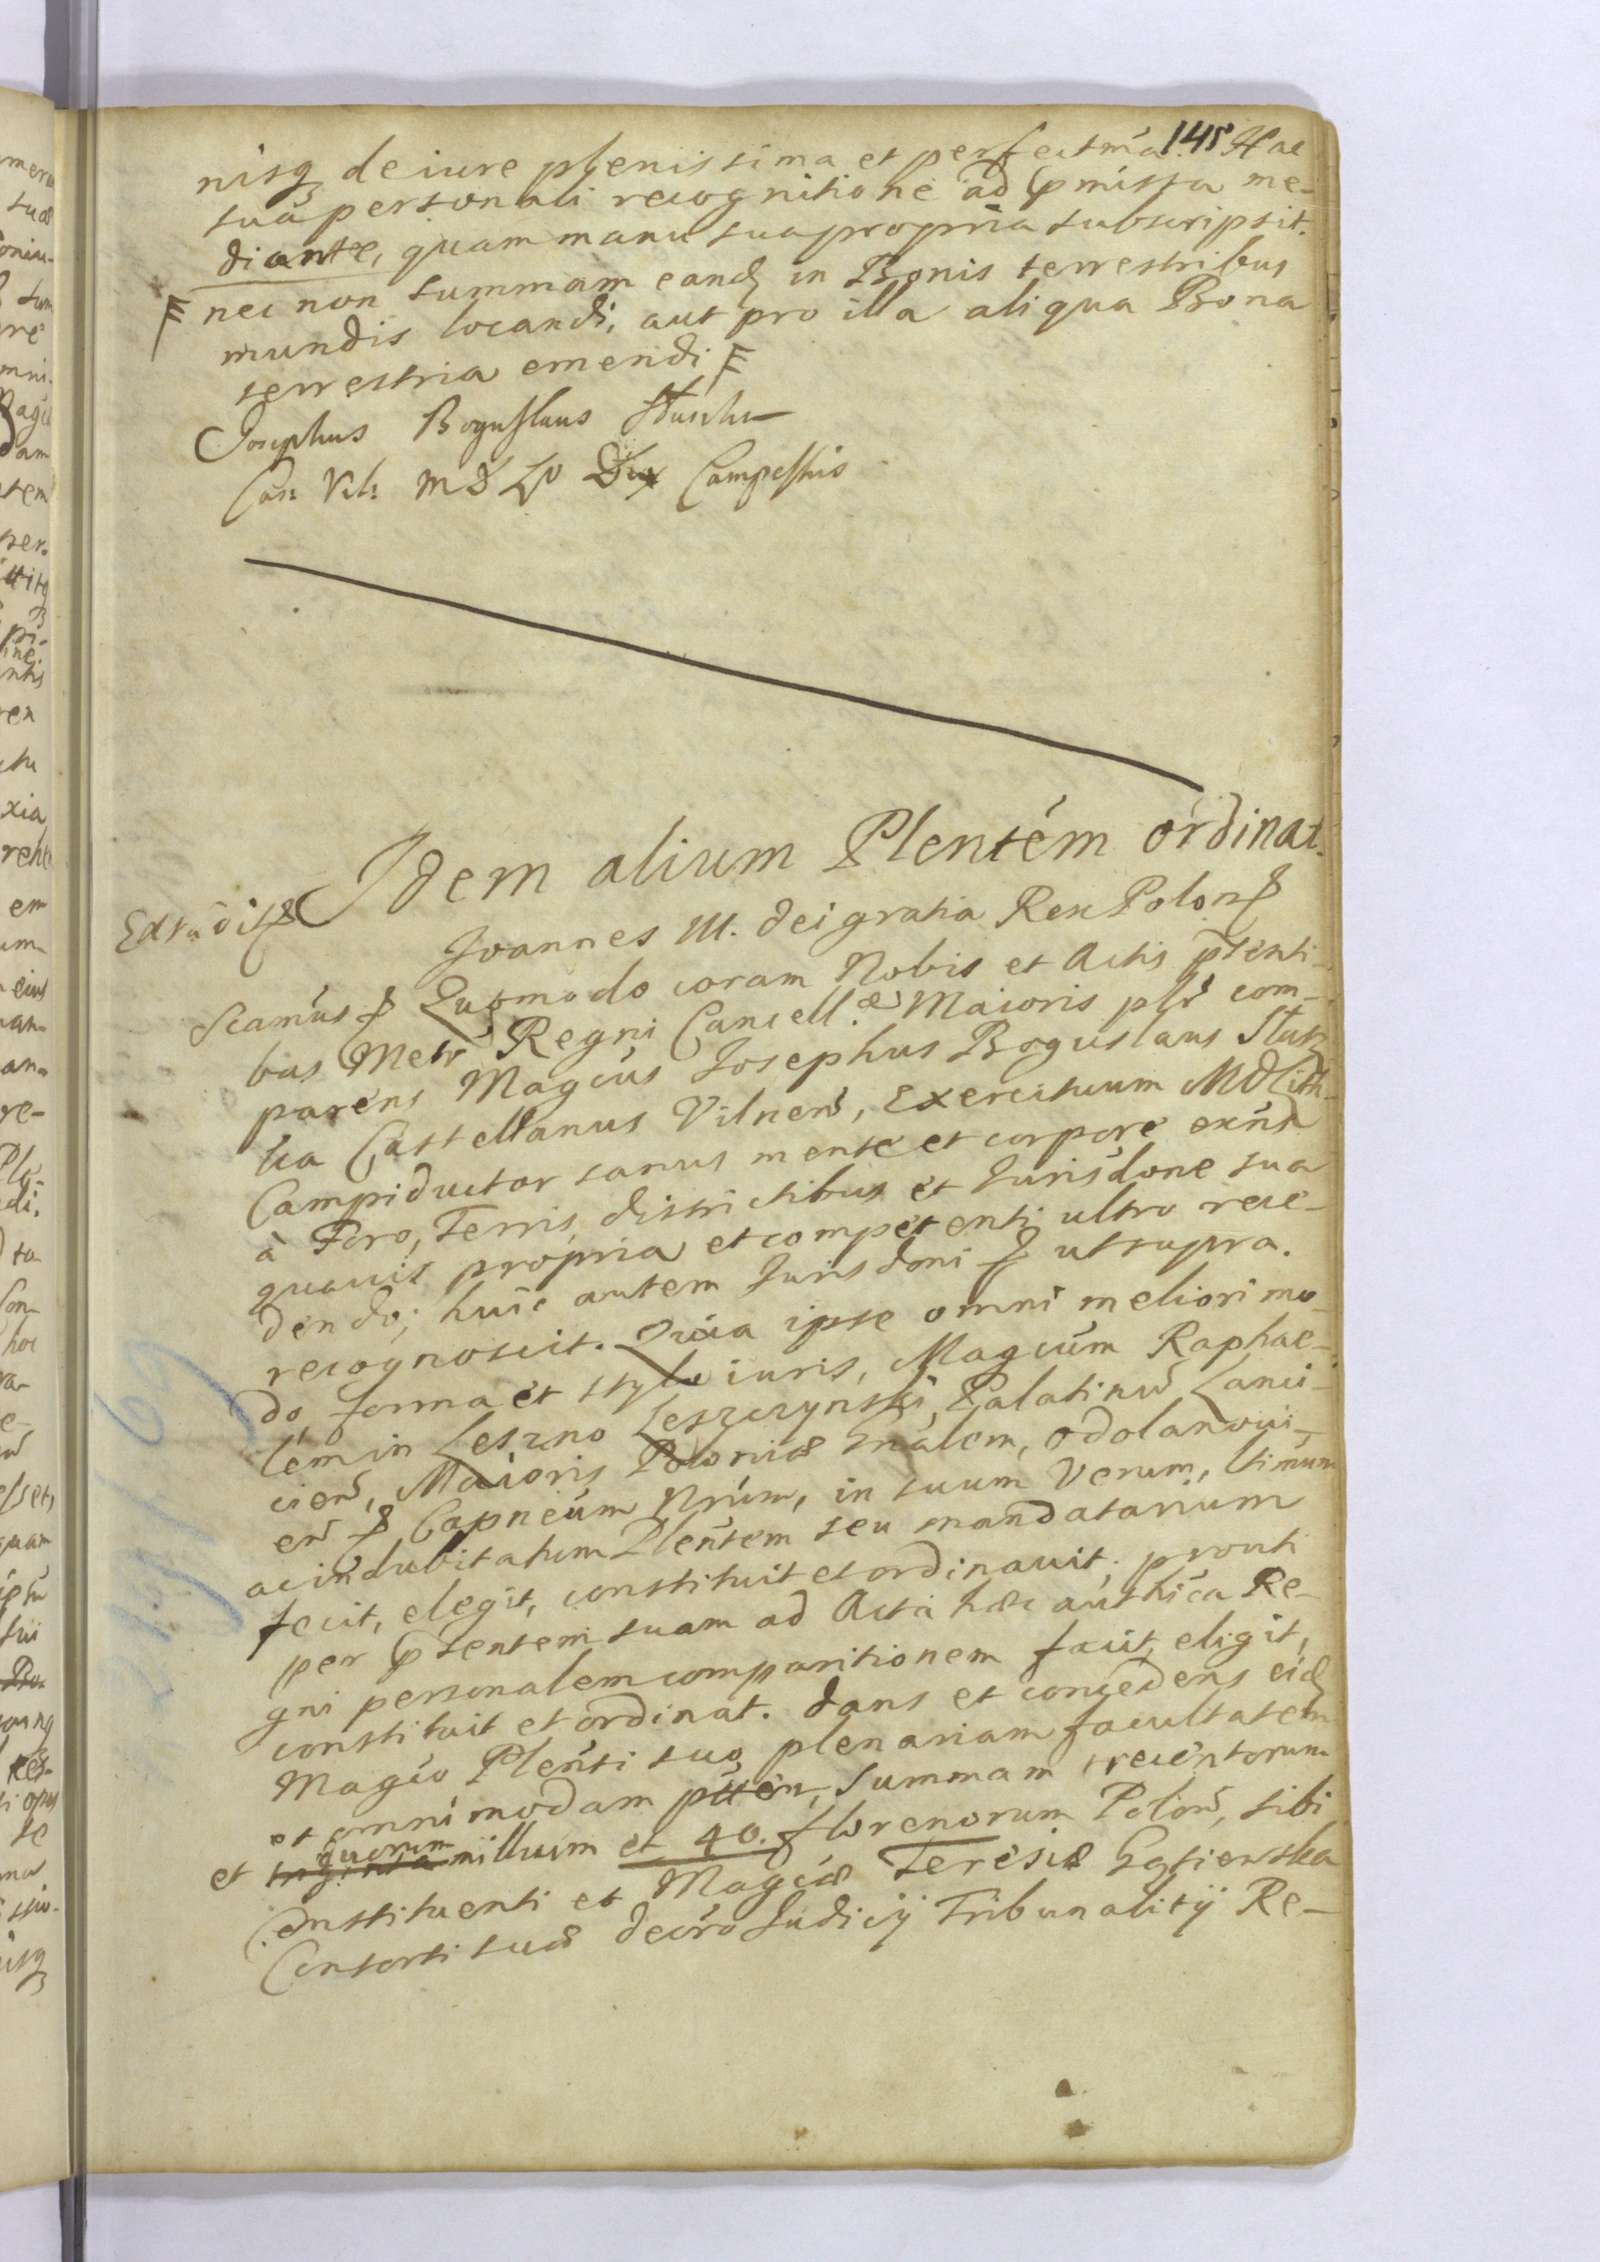 145
nisq de iure plenissima et perfectma. Hac
suâ personali recognitione ad pmissa me-
diante, quam manu sua propria subscripsit.
nec non summam eand in Bonis terrestribus
mundis locandi, aut pro illa aliqua Bona
terrestria emendi
Josephus Boguslaus Sluszka
Cas: Vil: M D L Dux Campestris
Idem alium Plentém ordinat.
Extradit
Joannes III. Dei gratia Rex Polon
Scamús Quomodo coram Nobis et Actis pſenti-
bus Metr Regni Cancell.æ Maioris plr com-
parens Magcus Josephus Boguslaus Slusz
ka Castellanus Vilnens, Exercituum MDLith
Campiductor sanus mente et corpore exñs
à Foro, Terris, districtibus et Jurisdone sua
quavis propria et competenti ultro rece-
dendo; huic autem Jurisdoni ut supra.
recognovit. Quia ipse omni meliori mo-
do forma et stylo iuris, Magcúm Raphae-
lem in Leszno Leszczynski, Palatinus Lanci-
ciens, Maioris Poloniæ Gnalem, Odolanovi-
en Capneúm Nrúm, in suum Verum, ltimúm
ac indubitatum Plentem seu mandatarium
fecit, elegit, constituit et ordinavit; prouti
per pſentem suam ad Acta hæc authica Re-
gni personalem comparitionem facit, eligit,
constituit et ordinat. dans et concedens eid
Magco Plenti suo plenariam facultatem
et omnimodam ptten, Summam trecentorum
et quorum millium et 40. florenorum Polon, sibi
Constituenti et Magcæ Teresiæ Gąsiewska
Consorti suæ decro Judicij Tribunalitij Re-